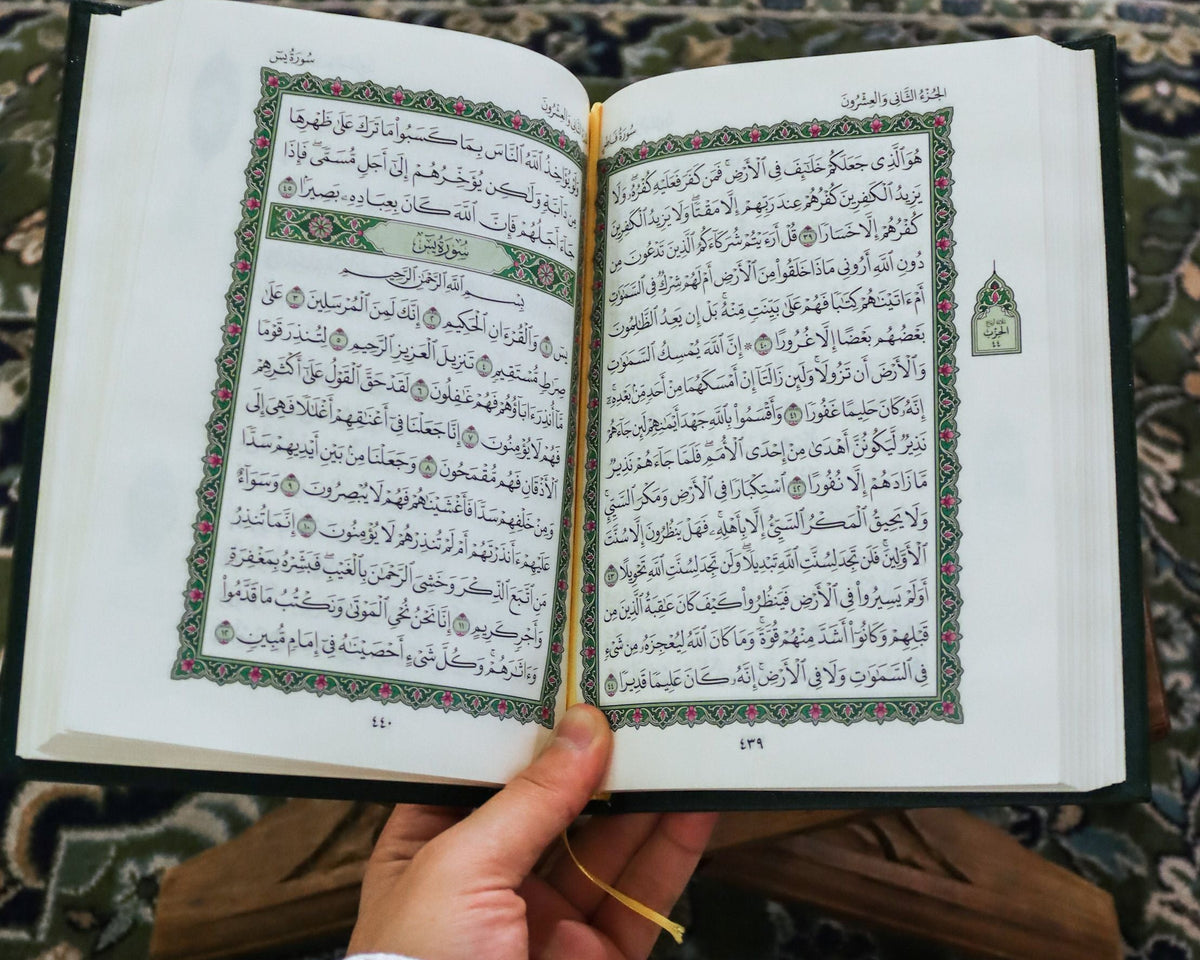 الجُزْءُ الثَّانِي وَالعِشْرُونَ
سُورَةُ فَاطِرٍ
هُوَ ٱلَّذِى جَعَلَكُمْ خَلَٰٓئِفَ فِى ٱلْأَرْضِ ۚ فَمَن كَفَرَ فَعَلَيْهِ كُفْرُهُۥ ۖ وَلَا
يَزِيدُ ٱلْكَٰفِرِينَ كُفْرُهُمْ عِندَ رَبِّهِمْ إِلَّا مَقْتًا ۖ وَلَا يَزِيدُ ٱلْكَٰفِرِينَ
كُفْرُهُمْ إِلَّا خَسَارًا ٣٩ قُلْ أَرَءَيْتُمْ شُرَكَآءَكُمُ ٱلَّذِينَ تَدْعُونَ مِن
دُونِ ٱللَّهِ أَرُونِى مَاذَا خَلَقُوا۟ مِنَ ٱلْأَرْضِ أَمْ لَهُمْ شِرْكٌ فِى ٱلسَّمَٰوَٰتِ
أَمْ ءَاتَيْنَٰهُمْ كِتَٰبًا فَهُمْ عَلَىٰ بَيِّنَتٍ مِّنْهُ ۚ بَلْ إِن يَعِدُ ٱلظَّٰلِمُونَ
بَعْضُهُم بَعْضًا إِلَّا غُرُورًا ٤٠ ۞ إِنَّ ٱللَّهَ يُمْسِكُ ٱلسَّمَٰوَٰتِ
وَٱلْأَرْضَ أَن تَزُولَا ۚ وَلَئِن زَالَتَآ إِنْ أَمْسَكَهُمَا مِنْ أَحَدٍ مِّنۢ بَعْدِهِۦٓ ۚ
إِنَّهُۥ كَانَ حَلِيمًا غَفُورًا ٤١ وَأَقْسَمُوا۟ بِٱللَّهِ جَهْدَ أَيْمَٰنِهِمْ لَئِن جَآءَهُمْ
نَذِيرٌ لَّيَكُونُنَّ أَهْدَىٰ مِنْ إِحْدَى ٱلْأُمَمِ ۖ فَلَمَّا جَآءَهُمْ نَذِيرٌ
مَّا زَادَهُمْ إِلَّا نُفُورًا ٤٢ ٱسْتِكْبَارًا فِى ٱلْأَرْضِ وَمَكْرَ ٱلسَّيِّئِ ۚ
وَلَا يَحِيقُ ٱلْمَكْرُ ٱلسَّيِّئُ إِلَّا بِأَهْلِهِۦ ۚ فَهَلْ يَنظُرُونَ إِلَّا سُنَّتَ
ٱلْأَوَّلِينَ ۚ فَلَن تَجِدَ لِسُنَّتِ ٱللَّهِ تَبْدِيلًا ۖ وَلَن تَجِدَ لِسُنَّتِ ٱللَّهِ تَحْوِيلًا ٤٣
أَوَلَمْ يَسِيرُوا۟ فِى ٱلْأَرْضِ فَيَنظُرُوا۟ كَيْفَ كَانَ عَٰقِبَةُ ٱلَّذِينَ مِن
قَبْلِهِمْ وَكَانُوٓا۟ أَشَدَّ مِنْهُمْ قُوَّةً ۚ وَمَا كَانَ ٱللَّهُ لِيُعْجِزَهُۥ مِن شَىْءٍ
فِى ٱلسَّمَٰوَٰتِ وَلَا فِى ٱلْأَرْضِ ۚ إِنَّهُۥ كَانَ عَلِيمًا قَدِيرًا ٤٤
٤٣٩
الحِزْب
٤٤
الجُزْءُ الثَّانِي وَالعِشْرُونَ
سُورَةُ يسٓ
وَلَوْ يُؤَاخِذُ ٱللَّهُ ٱلنَّاسَ بِمَا كَسَبُوا۟ مَا تَرَكَ عَلَىٰ ظَهْرِهَا
مِن دَآبَّةٍ وَلَٰكِن يُؤَخِّرُهُمْ إِلَىٰٓ أَجَلٍ مُّسَمًّى ۖ فَإِذَا
جَآءَ أَجَلُهُمْ فَإِنَّ ٱللَّهَ كَانَ بِعِبَادِهِۦ بَصِيرًۢا ٤٥
سُورَةُ يسٓ
بِسْمِ ٱللَّهِ ٱلرَّحْمَٰنِ ٱلرَّحِيمِ
يسٓ ١ وَٱلْقُرْءَانِ ٱلْحَكِيمِ ٢ إِنَّكَ لَمِنَ ٱلْمُرْسَلِينَ ٣ عَلَىٰ
صِرَٰطٍ مُّسْتَقِيمٍ ٤ تَنزِيلَ ٱلْعَزِيزِ ٱلرَّحِيمِ ٥ لِتُنذِرَ قَوْمًا
مَّآ أُنذِرَ ءَابَآؤُهُمْ فَهُمْ غَٰفِلُونَ ٦ لَقَدْ حَقَّ ٱلْقَوْلُ عَلَىٰٓ أَكْثَرِهِمْ
فَهُمْ لَا يُؤْمِنُونَ ٧ إِنَّا جَعَلْنَا فِىٓ أَعْنَٰقِهِمْ أَغْلَٰلًا فَهِىَ إِلَى
ٱلْأَذْقَانِ فَهُم مُّقْمَحُونَ ٨ وَجَعَلْنَا مِنۢ بَيْنِ أَيْدِيهِمْ سَدًّا
وَمِنْ خَلْفِهِمْ سَدًّا فَأَغْشَيْنَٰهُمْ فَهُمْ لَا يُبْصِرُونَ ٩ وَسَوَآءٌ
عَلَيْهِمْ ءَأَنذَرْتَهُمْ أَمْ لَمْ تُنذِرْهُمْ لَا يُؤْمِنُونَ ١٠ إِنَّمَا تُنذِرُ
مَنِ ٱتَّبَعَ ٱلذِّكْرَ وَخَشِىَ ٱلرَّحْمَٰنَ بِٱلْغَيْبِ ۖ فَبَشِّرْهُ بِمَغْفِرَةٍ
وَأَجْرٍ كَرِيمٍ ١١ إِنَّا نَحْنُ نُحْىِ ٱلْمَوْتَىٰ وَنَكْتُبُ مَا قَدَّمُوا۟
وَءَاثَٰرَهُمْ ۚ وَكُلَّ شَىْءٍ أَحْصَيْنَٰهُ فِىٓ إِمَامٍ مُّبِينٍ ١٢
٤٤٠